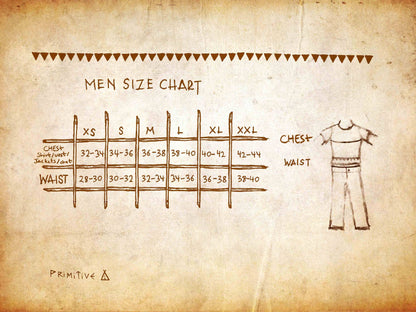 MEN SIZE CHART
XS S M L XL XXL
CHEST
Shirt/vest/
Jackets/coat
32-34 34-36 36-38 38-40 40-42 42-44
WAIST 28-30 30-32 32-34 34-36 36-38 38-40
CHEST
WAIST
PRIMITIVE